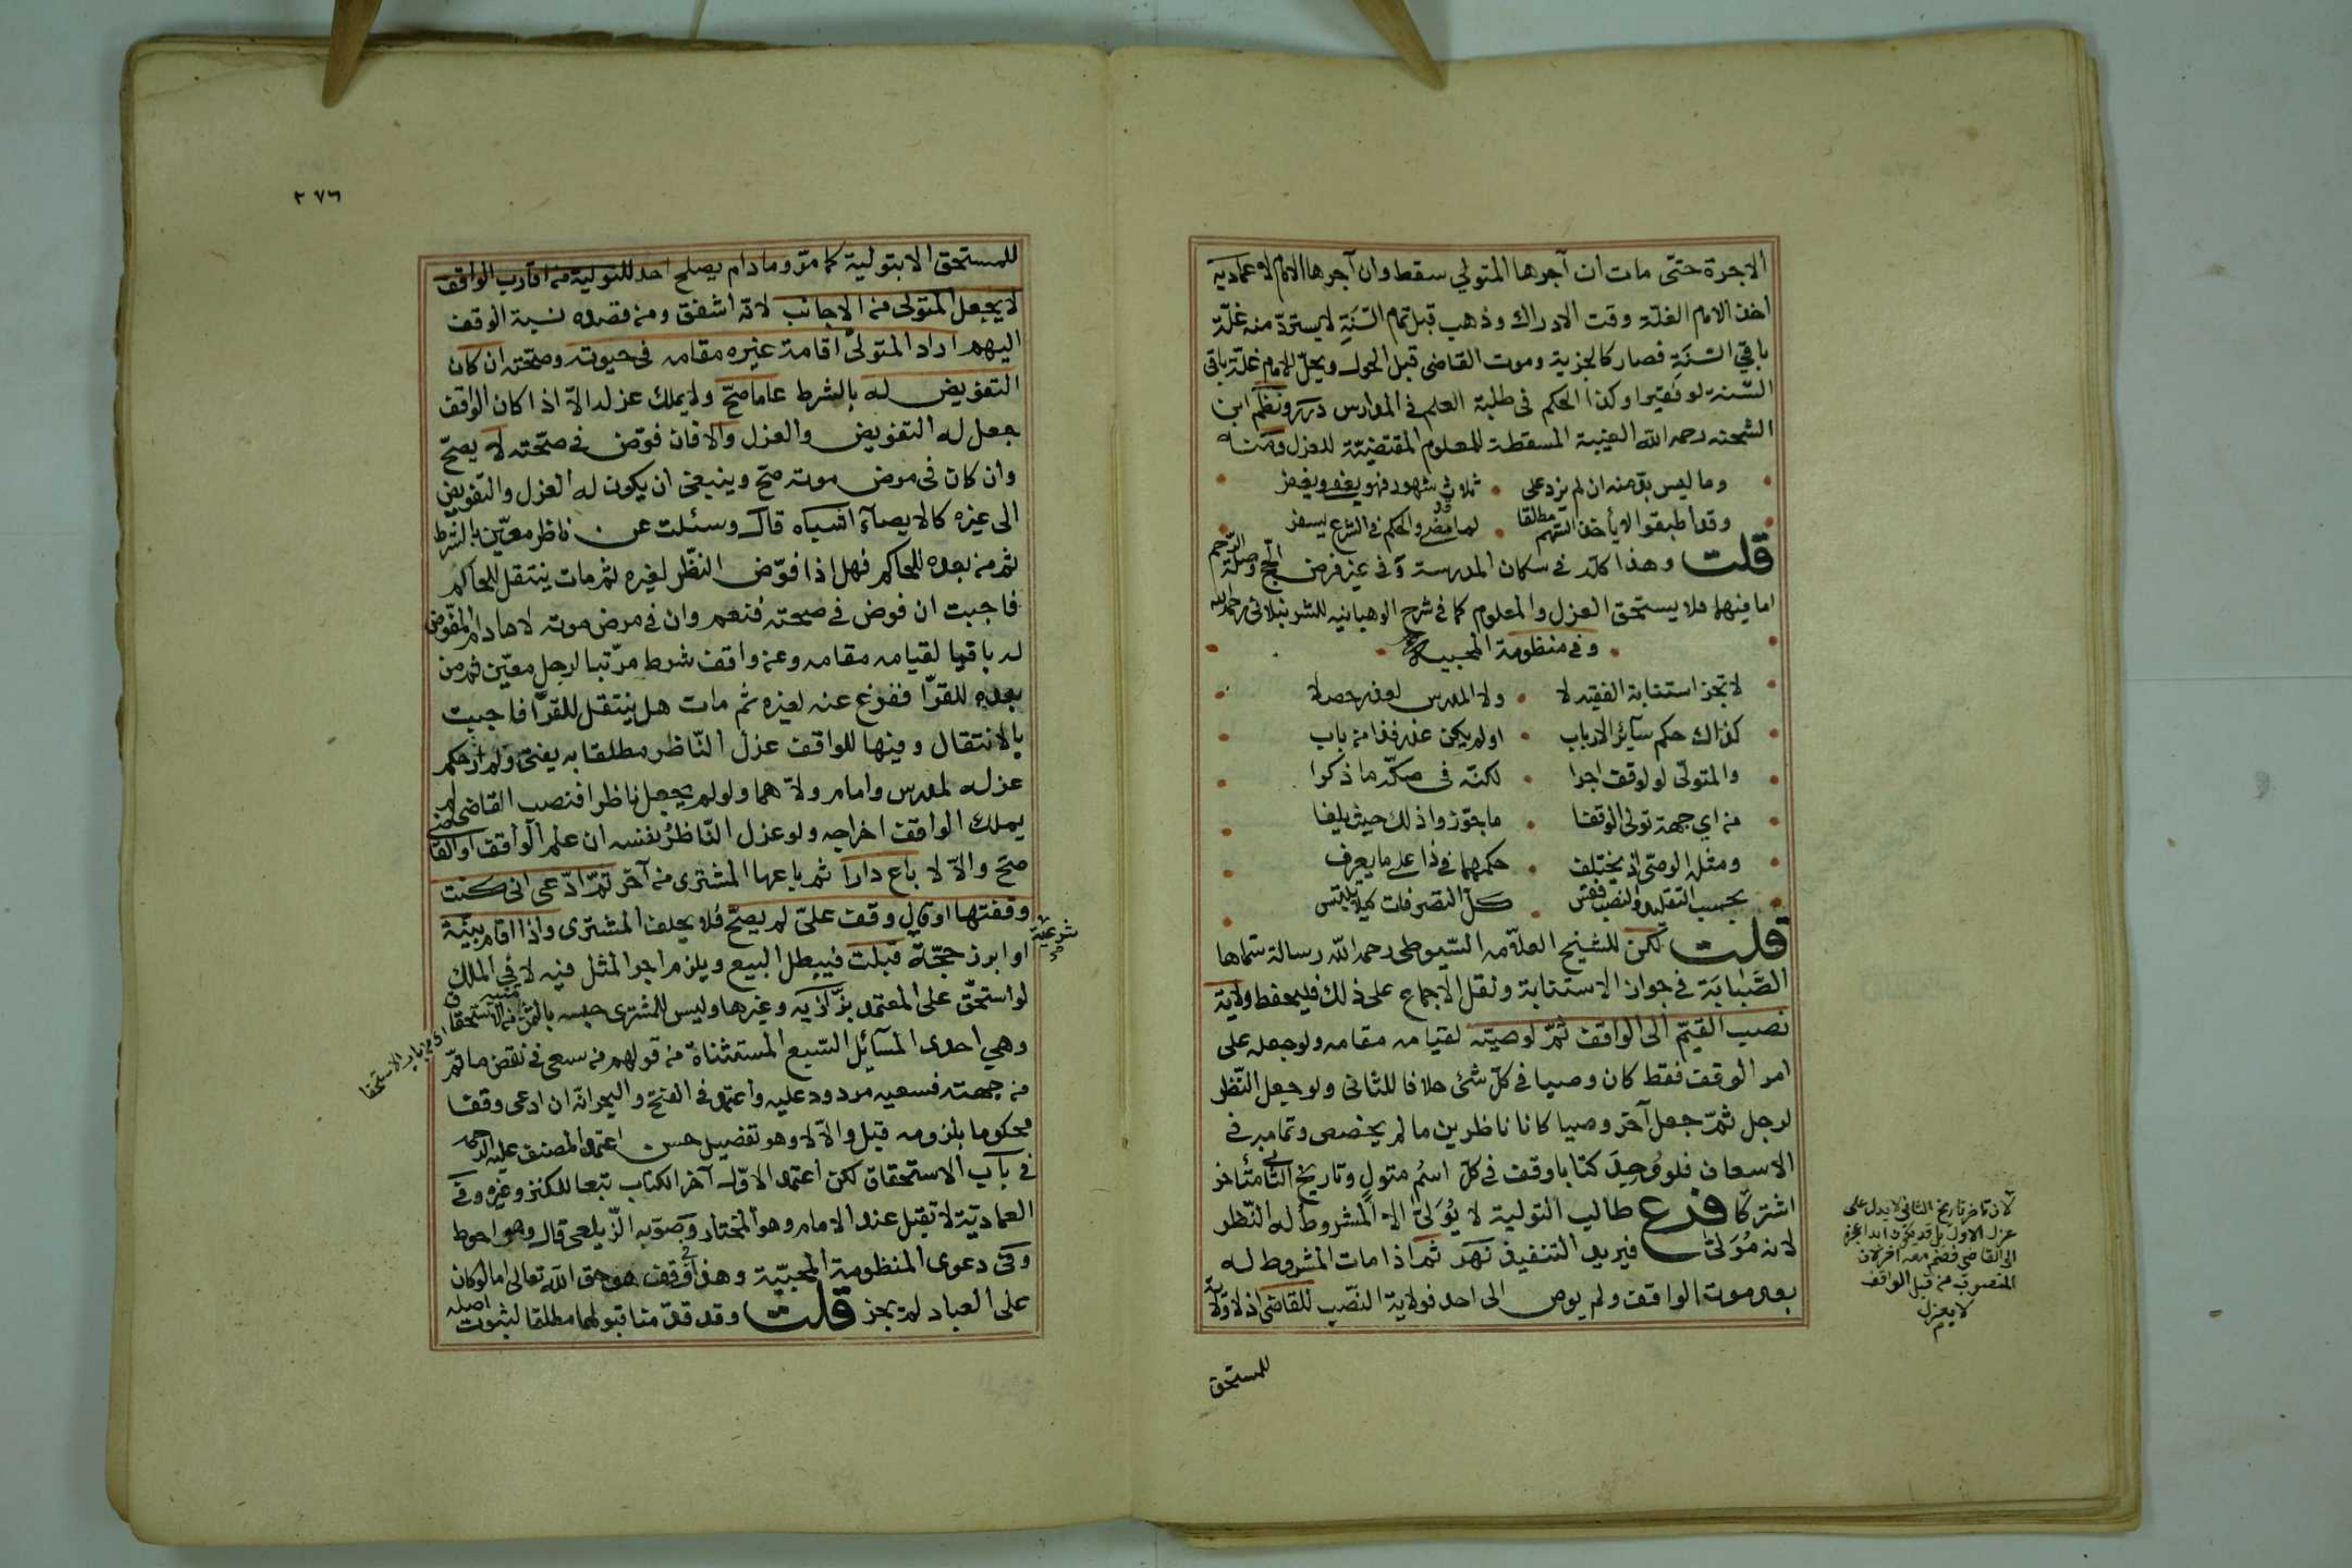 الاجرة حتى مات ان آجرها المتولي سقط وان آجرها الامام لا عماديه
اخذ الامام الغلة وقت الادراك وذهب قبل تمام السَّنَةِ لا يستردّ منه غلّة
باقي السَّنَةِ فصار كالجزية وموت القاضي قبل الحول ويحلّ للامام غلّة باقي
السّنة لو فقيرا وكذا الحكم في طلبة العلم في المدارس درر ونظم ابن
الشحنه رحمه الله الغيبة المسقطة للمعلوم المقتضيّة للعزل ومنه
وما ليس بدّ منه ان لم يزد على ثلاث شهور فهو يعفو ويغفر
وقد اطبقوا لا يأخذ السهم مطلقا لما قد مضى والحكم في الشرع يسفر
قلت وهذا كلّه في سكان المدرسة وفي غير فرض الحجّ وصلة الرّحم
اما فيهما فلا يستحق العزل والمعلوم كما في شرح الوهبانيه للشرنبلالي رحمه الله
وفي منظومة المحبية
لا تجز استنابة الفقيه لا ولا المدرس لعذر حصلا
كذاك حكم سآئر الارباب اولم يكن عذر فذا من باب
والمتولّي لو لوقف اجرا لكنّه في صكّه ما ذكرا
من اي جهة تولّى الوقفا ما جوّزوا ذلك حيث يلفا
ومثله الوصّى اذ يختلف حكمهما في ذا على ما يعرف
بحسب التقليد والنصب فقس كلّ التصرفات كيلا يلتبس
قلت لكن للشيخ العلاّمه السّيوطي رحمه الله رسالة سمّاها
الضَّبابَة في جواز الاستنابة ونقل الاجماع على ذلك فليحفظ ولاية
نصب القيّم الى الواقف ثمّ لوصيّه لقيامه مقامه ولو جعله على
امر الوقف فقط كان وصيا في كلّ شئ خلافا للثاني ولو جعل النّظر
لرجل ثمّ جعل آخر وصيا كانا ناظرين ما لم يخصص وتمامه في
الاسعاف فلو وُجِدَ كتابا وقف في كلّ اسم متول وتاريخ الثاني متأخر
اشتركا فرع طالب التولية لا يُوَلّى الا المشروط له النّظر
لانه مُوَلّى فيريد التنفيذ نهر ثم اذا مات المشروط له
بعد موت الواقف ولم يوص الى احد فولاية النّصب للقاضي اذ لا ولاية
للمستحق
لان تأخر تاريخ الثاني لا يدل على
عزل الاول بل قد يكون ابدا عجزه
الى القاضي فضم معه آخر لان
المنصوب من قبل الواقف
لا يعزل
٢٧٦
للمستحق الا بتولية كما مرّ وما دام يصلح احد للتولية من اقارب الواقف
لا يجعل المتولي من الاجانب لانّه اشفق ومن قصده نسبة الوقف
اليهم اراد المتولّي اقامة غيره مقامه في حيوته وصحّته ان كان
التفويض له بالشرط عاما صحّ ولا يملك عزله الاّ اذا كان الواقف
جعل له التفويض والعزل والا فان فوّض في صحّته لا يصحّ
وان كان في مرض موته صحّ وينبغي ان يكون له العزل والتفويض
الى غيره كالايصآء اشباه قال وسئلت عن ناظر معيّن بالشرط
ثم من بعده للحاكم فهل اذا فوّض النّظر لغيره ثم مات ينتقل للحاكم
فاجبت ان فوض في صحته فنعم وان في مرض موته لا ما دام المفوض
له باقيا لقيامه مقامه وعن واقف شرط مرتّبا لرجل معيّن ثم من
بعده للفقرآ ففرغ عنه لغيره ثم مات هل ينتقل للفقرآ فاجبت
بالانتقال وفيها للواقف عزل النّاظر مطلقا به يفتى ولم ار حكم
عزله لمدرس وامام ولاّهما ولو لم يجعل ناظرا فنصب القاضي لم
يملك الواقف اخراجه ولو عزل النّاظر نفسه ان علم الواقف او القاضي
صحّ والاّ لا باع دارا ثم باعها المشتري من آخر ثمّ ادّعى اني كنت
وقفتها او قال وقف عليّ لم يصحّ فلا يحلف المشتري واذا اقام بيّنة
او ابرز حجّة شرعيّة قبلت فيبطل البيع ويلزم اجر المثل فيه لا في الملك
لو استحقّ على المعتمد بزّازيه وغيرها وليس للمشتري حبسه بالثمن منيه من الاستحقاق
وهي احدى المسآئل السّبع المستثناة من قولهم من سعى في نقض ما تمّ
من جهته فسعيه مردود عليه واعتمد في الفتح والبحر انّه ان ادعى وقفا
محكوما بلزومه قبل والاّ لا وهو تفصيل حسن اعتمده المصنف عليه الرحمه
في باب الاستحقاق لكن اعتمد الاوّل آخر الكتاب تبعا للكنز وغيره وفي
العماديّة لا تقبل عند الامام وهو المختار وصوّبه الزّيلعي قال وهو احوط
وفي دعوى المنظومة المحبيّة وهذا في وقف هو حق الله تعالى اما لو كان
على العباد لم يجز قلت وقد قدّمنا قبولها مطلقا لثبوت اصله
اي من باب الاستحقا